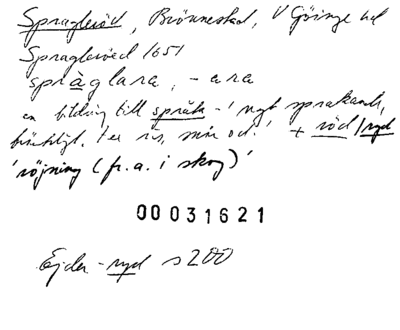 Spragleröd, Brönnestad, V Göinge hd
Spragleröed 1651
språglara, -ara
en bildning till språk- 'ngt sprakande,
t ex ris, + röd/ryd
'röjning (fr. a. i skog)'
00031621
Ejder-ryd s 200